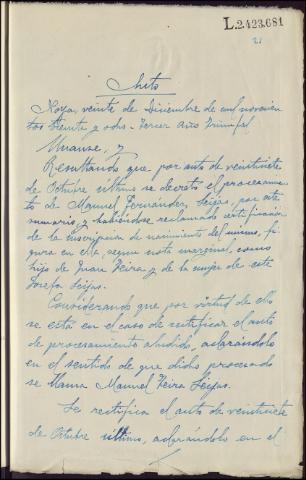 L.2423.681
21
Auto
Noya, veinte de Diciembre de mil novecien
tos treinta y ocho - Tercer Año Triunfal
Unanse, y
Resultando que por auto de veintisiete
de Octubre último se decretó el procesamien
to de Manuel Fernández Seijas, por este
sumario y habiéndose reclamado certificación
de la inscripción de nacimiento del mismo, fi
gura en ella, según nota marginal, como
hijo de Juan Neira y de la mujer de este
Josefa Seijas.
Considerando que por virtud de ello
se está en el caso de rectificar el auto
de procesamiento aludido, aclarándolo
en el sentido de que dicho procesado
se llama Manuel Neira Seijas.
Se rectifica el auto de veintisiete
de Octubre último, aclarándolo en el